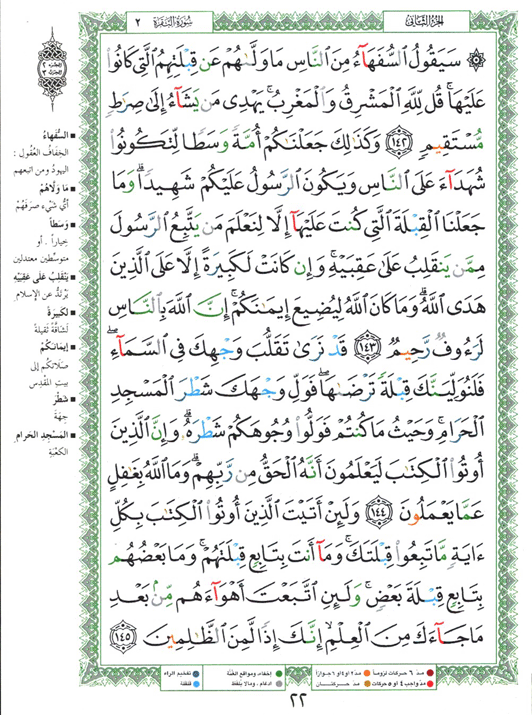 الجزء الثاني
سورة البقرة
٢
۞ سَيَقُولُ ٱلسُّفَهَآءُ مِنَ ٱلنَّاسِ مَا وَلَّىٰهُمْ عَن قِبْلَتِهِمُ ٱلَّتِى كَانُوا۟
عَلَيْهَا ۚ قُل لِّلَّهِ ٱلْمَشْرِقُ وَٱلْمَغْرِبُ ۚ يَهْدِى مَن يَشَآءُ إِلَىٰ صِرَٰطٍ
مُّسْتَقِيمٍ ﴿١٤٢﴾ وَكَذَٰلِكَ جَعَلْنَٰكُمْ أُمَّةً وَسَطًا لِّتَكُونُوا۟
شُهَدَآءَ عَلَى ٱلنَّاسِ وَيَكُونَ ٱلرَّسُولُ عَلَيْكُمْ شَهِيدًا ۗ وَمَا
جَعَلْنَا ٱلْقِبْلَةَ ٱلَّتِى كُنتَ عَلَيْهَآ إِلَّا لِنَعْلَمَ مَن يَتَّبِعُ ٱلرَّسُولَ
مِمَّن يَنقَلِبُ عَلَىٰ عَقِبَيْهِ ۚ وَإِن كَانَتْ لَكَبِيرَةً إِلَّا عَلَى ٱلَّذِينَ
هَدَى ٱللَّهُ ۗ وَمَا كَانَ ٱللَّهُ لِيُضِيعَ إِيمَٰنَكُمْ ۚ إِنَّ ٱللَّهَ بِٱلنَّاسِ
لَرَءُوفٌ رَّحِيمٌ ﴿١٤٣﴾ قَدْ نَرَىٰ تَقَلُّبَ وَجْهِكَ فِى ٱلسَّمَآءِ ۖ
فَلَنُوَلِّيَنَّكَ قِبْلَةً تَرْضَىٰهَا ۚ فَوَلِّ وَجْهَكَ شَطْرَ ٱلْمَسْجِدِ
ٱلْحَرَامِ ۚ وَحَيْثُ مَا كُنتُمْ فَوَلُّوا۟ وُجُوهَكُمْ شَطْرَهُۥ ۗ وَإِنَّ ٱلَّذِينَ
أُوتُوا۟ ٱلْكِتَٰبَ لَيَعْلَمُونَ أَنَّهُ ٱلْحَقُّ مِن رَّبِّهِمْ ۗ وَمَا ٱللَّهُ بِغَٰفِلٍ
عَمَّا يَعْمَلُونَ ﴿١٤٤﴾ وَلَئِنْ أَتَيْتَ ٱلَّذِينَ أُوتُوا۟ ٱلْكِتَٰبَ بِكُلِّ
ءَايَةٍ مَّا تَبِعُوا۟ قِبْلَتَكَ ۚ وَمَآ أَنتَ بِتَابِعٍ قِبْلَتَهُمْ ۚ وَمَا بَعْضُهُم
بِتَابِعٍ قِبْلَةَ بَعْضٍ ۚ وَلَئِنِ ٱتَّبَعْتَ أَهْوَآءَهُم مِّنۢ بَعْدِ
مَا جَآءَكَ مِنَ ٱلْعِلْمِ ۙ إِنَّكَ إِذًا لَّمِنَ ٱلظَّٰلِمِينَ ﴿١٤٥﴾
■ السُّفَهَاءُ
الخِفَافُ العُقُول :
اليهودُ ومن اتبعهم
■ مَا وَلَّاهُمْ
أيُّ شَيْءٍ صَرَفَهُمْ
■ وَسَطاً
خياراً . أو
متوسّطين معتدلين
■ يَنقَلِبُ عَلى عَقِبَيْهِ
يَرْتدُّ عن الإسلام
■ لَكَبِيرَةً
لَشَاقَّةً ثقيلةً
■ إيمَانَكُمْ
صَلَاتَكُم إلى
بيتِ المَقْدِس
■ شَطْرَ
جِهَةَ
■ المَسْجِدِ الحَرام
الكَعْبَة
مدّ ٦ حركات لزوماً
مدّ ٢ أو ٤ أو ٦ جوازاً
إخفاء، ومواقع الغُنَّة
تفخيم الراء
مدّ واجب ٤ أو ٥ حركات
مدّ حركتان
إدغام، وما لا يُلفظ
قلقلة
٢٢